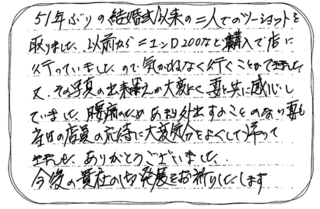 51年ぶりの結婚式以来の二人でのツーショットを
取りました。以前からニコンD200など購入で店に
行っていましたので気がねなく行くことができました。
又、その写真の出来栄えの大変よく、妻と共に感心し
ていました。腰痛のためあまり外出することのない妻も
当日の店員の応待に大変気分をよくして帰って
きました。ありがとうございました。
今後の貴社の御発展をお祈りいたします